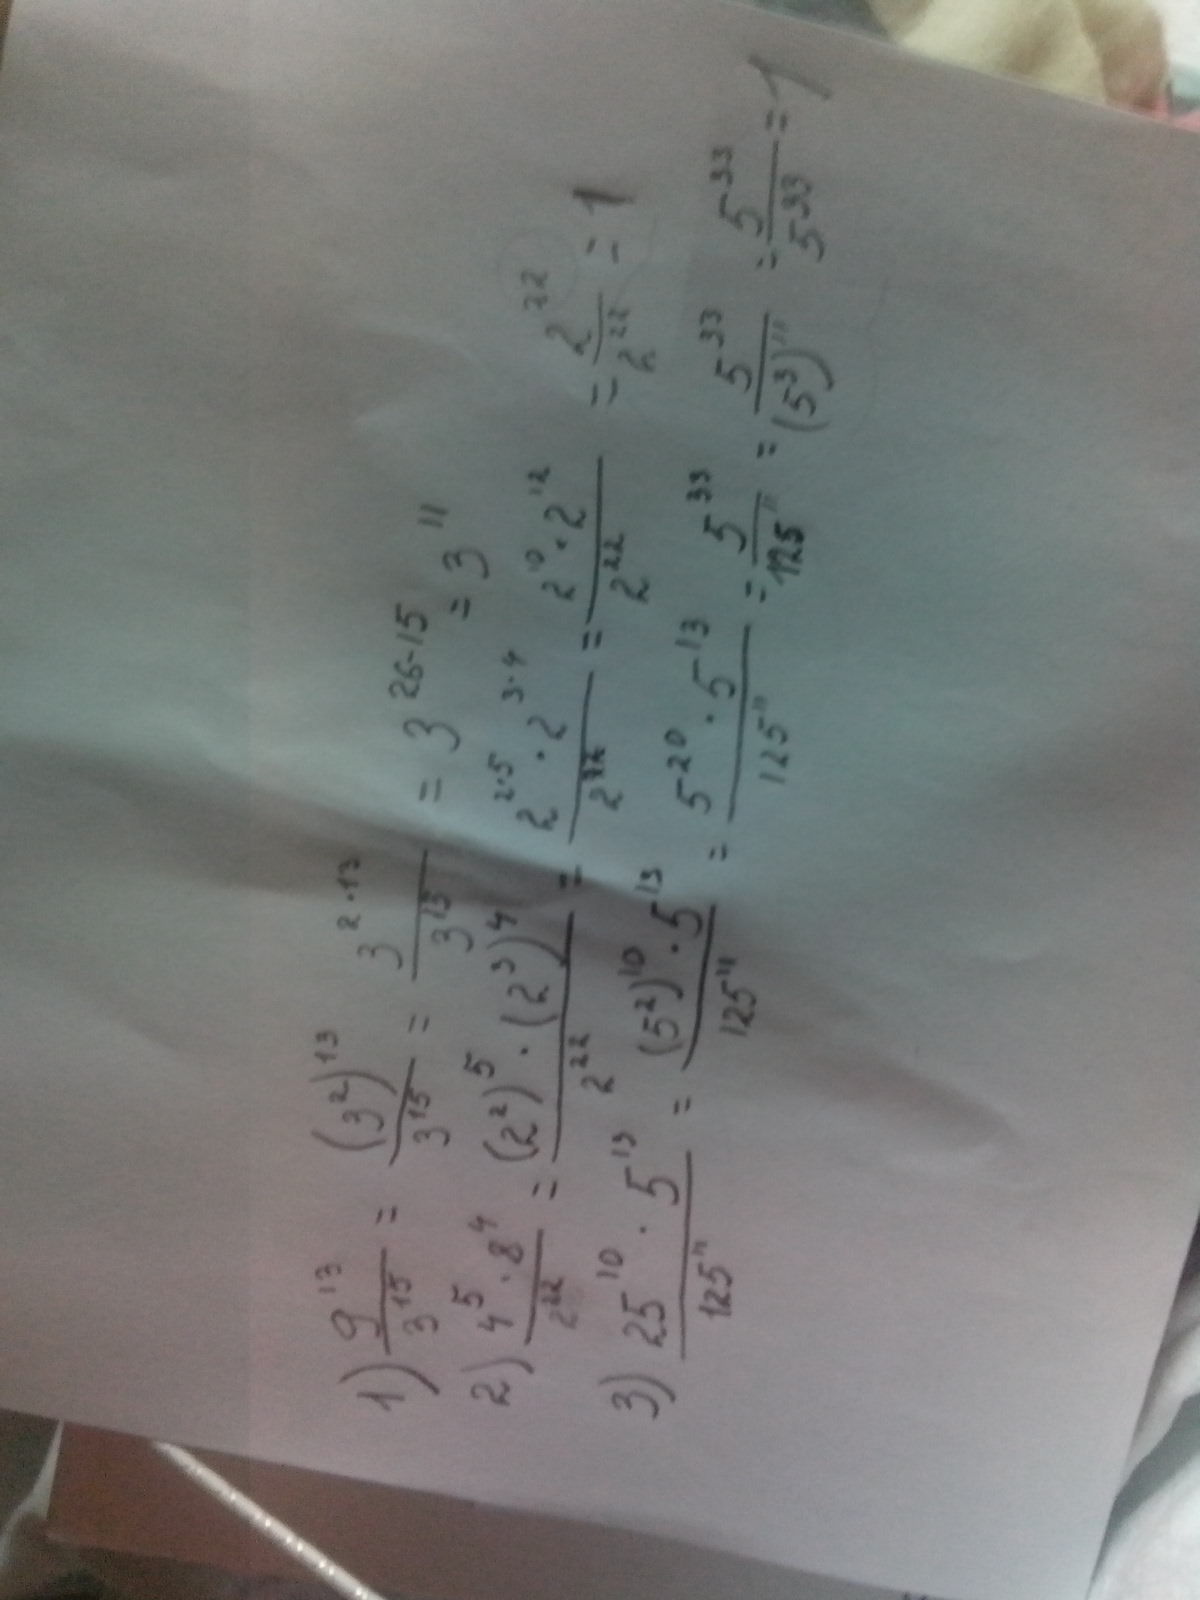 1) 9^13/3^15 = (3^2)^13/3^15 = 3^2·13/3^15 = 3^26-15 = 3^11
2) 4^5·8^4/2^22 = (2^2)^5·(2^3)^4/2^22 = 2^2·5·2^3·4/2^22 = 2^10·2^12/2^22 = 2^22/2^22 = 1
3) 25^10·5^13/125^11 = (5^2)^10·5^13/125^11 = 5^20·5^13/125^11 = 5^33/125^11 = 5^33/(5^3)^11 = 5^33/5^33 = 1